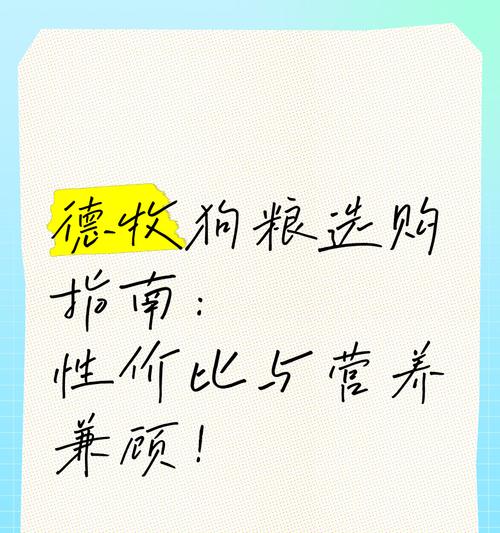 德牧狗粮选购
指南：
性价比与营养
兼顾！